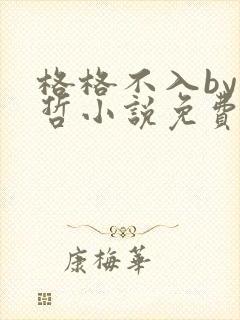 格格不入by
哲小說免費
康梅華